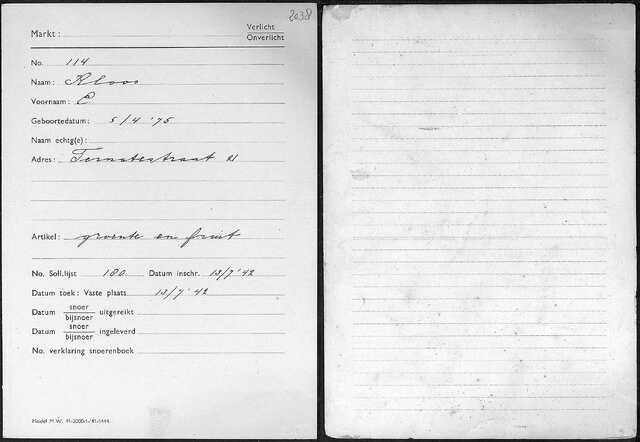 2038
Markt: Verlicht
Onverlicht
No. 114
Naam: Kloos
Voornaam: C
Geboortedatum: 5/4 '75
Naam echtg(e):
Adres: Ternatestraat
Artikel: groente en fruit
No. Soll.lijst 180 Datum inschr. 13/7 '42
Datum toek: Vaste plaats 13/7 '42
Datum snoer
bijsnoer uitgereikt
Datum snoer
bijsnoer ingeleverd
No. verklaring snoerenboek
Model M.W.